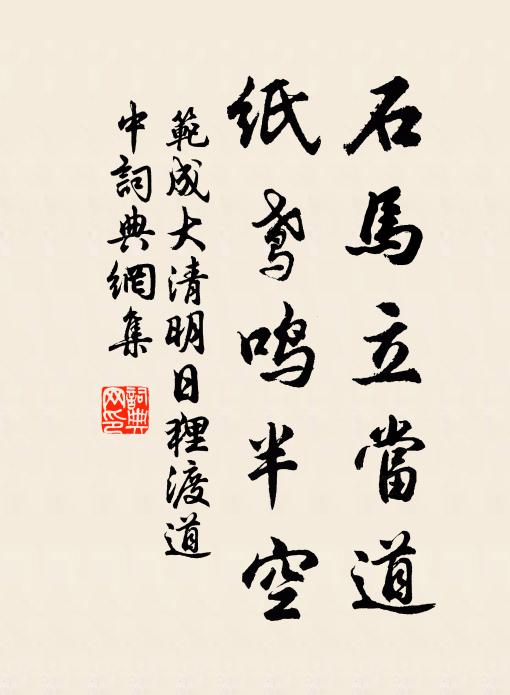 石馬立當道
紙鳶鳴半空
範成大清明日貍渡道
中詞典網集
詞典网印